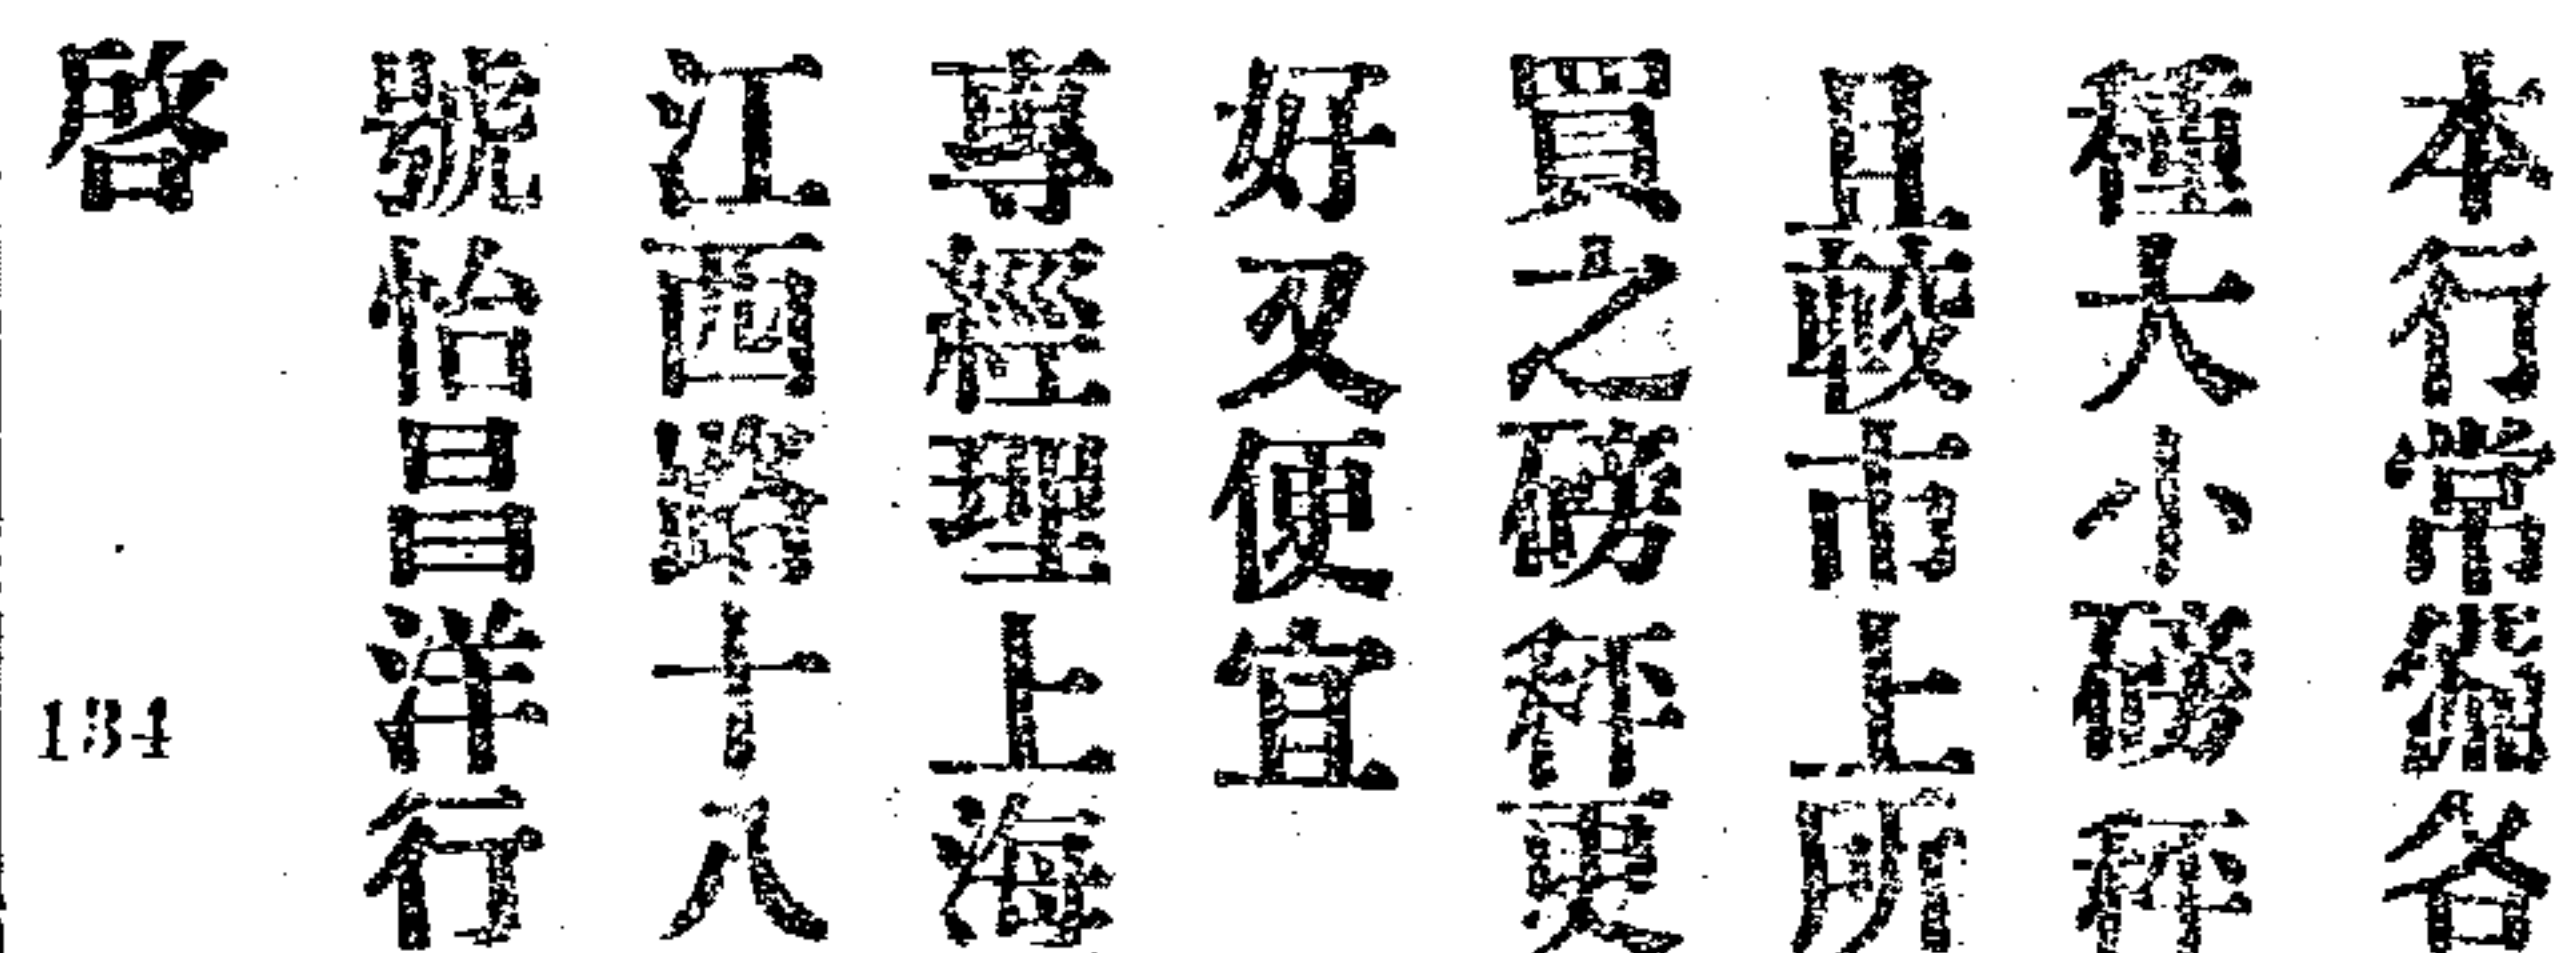 本行常備各
種大小磅秤
且較市上所
買之磅秤更
好又便宜
專經理上海
江西路十八
號怡昌洋行
啓
134